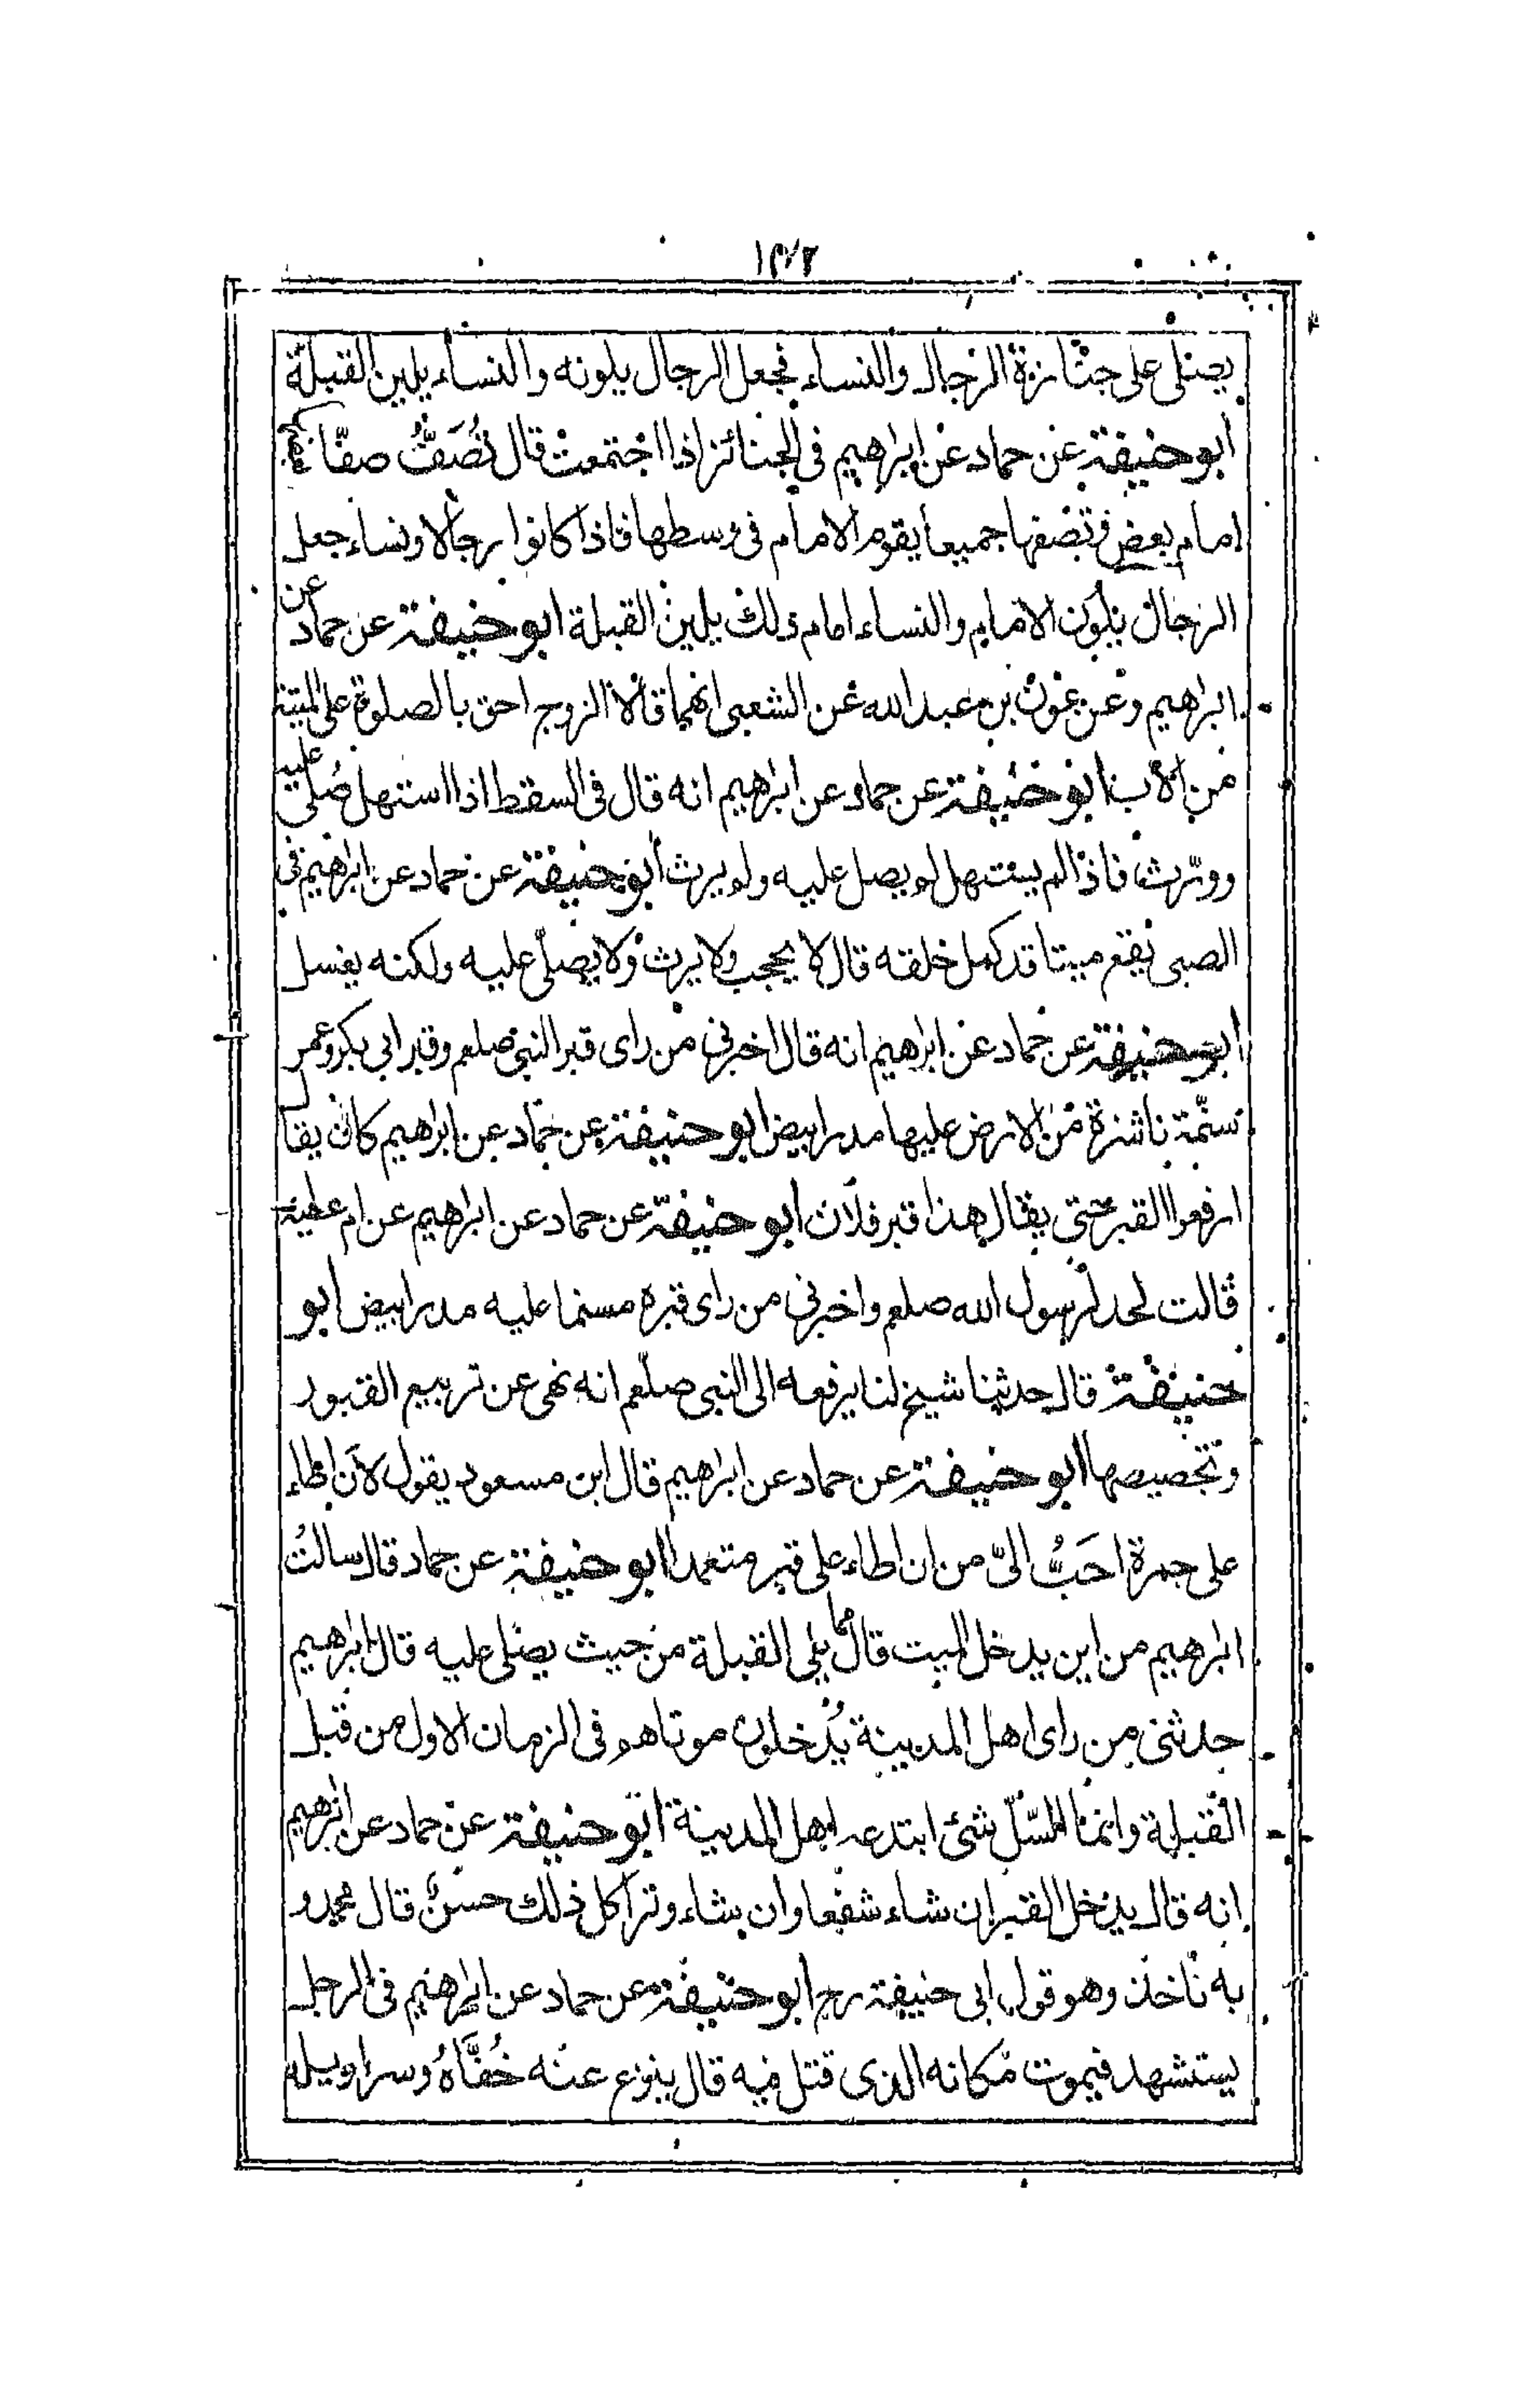 يصلى على جنازة الرجال والنساء فجعل الرجال يلونه والنساء يلين القبلة
ابو حنيفة عن حماد عن ابرهيم فى الجنائز اذا اجتمعت قال تُصَفُّ صفّا
امام بعض وتصفها جميعا يقوم الامام فى وسطها فاذا كانوا رجالا ونساء جعل
الرجال يلون الامام والنساء امام ذلك يلين القبلة ابو حنيفة عن حماد عن
ابرهيم وعن عون بن عبد الله عن الشعبى انهما قالا الزوج احق بالصلوة على الميتة
من الاب ابو حنيفة عن حماد عن ابرهيم انه قال فى السقط اذا استهل صُلّى عليه
وورّث فاذا لم يستهل لم يصل عليه ولم يرث ابو حنيفة عن حماد عن ابرهيم فى
الصبى يقع ميتا قد كمل خلقه قال لا يحجب ولا يرث ولا يصلى عليه ولكنه يغسل
ابو حنيفة عن حماد عن ابرهيم انه قال اخبرنى من راى قبر النبى صلعم وقبر ابى بكر وعمر
مسنّمة ناشزة من الارض عليها مدر ابيض ابو حنيفة عن حماد عن ابرهيم كان يقال
ارفعوا القبر حتى يقال هذا قبر فلان ابو حنيفة عن حماد عن ابرهيم عن ام عطية
قالت لحد لرسول الله صلعم واخبرنى من راى قبره مسنما عليه مدر ابيض ابو
حنيفة قال حدثنا شيخ لنا يرفعه الى النبى صلعم انه نهى عن تربيع القبور
وتجصيصها ابو حنيفة عن حماد عن ابرهيم قال ابن مسعود يقول لأن اطاء
على جمرة احَبُّ الىّ من ان اطاء على قبر متعمدا ابو حنيفة عن حماد قال سالتُ
ابرهيم من اين يدخل الميت قال مما يلى القبلة من حيث يصلى عليه قال ابرهيم
حدثنى من راى اهل المدينة يُدخلون موتاهم فى الزمان الاول من قبل
القبلة وانما السّلّ شئ ابتدعه اهل المدينة ابو حنيفة عن حماد عن ابرهيم
انه قال يدخل القبر ان شاء شفعا وان شاء وترا كل ذلك حسنٌ قال محمد و
به ناخذ وهو قول ابى حنيفة رح ابو حنيفة عن حماد عن ابرهيم فى الرجل
يستشهد فيموت مكانه الذى قتل فيه قال ينزع عنه خُفَّاهُ وسراويله